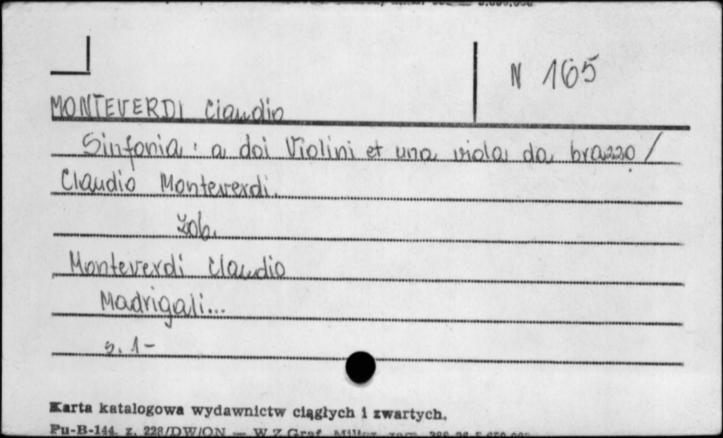 N 165
MONTEVERDI Claudio
Sinfonia : a doi Violini et una viola da brazzo /
Claudio Monteverdi.
zob.
Monteverdi Claudio
Madrigali...
s. 1-
Karta katalogowa wydawnictw ciągłych i zwartych.
Pu-B-144, z. 228/DW/ON — W.Z.Graf.